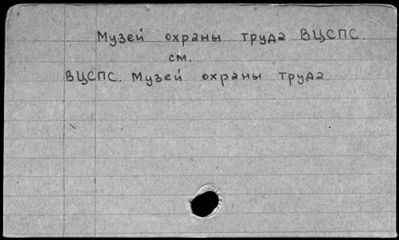 Музей охраны труда ВЦСПС.
см.
ВЦСПС. Музей охраны труда.